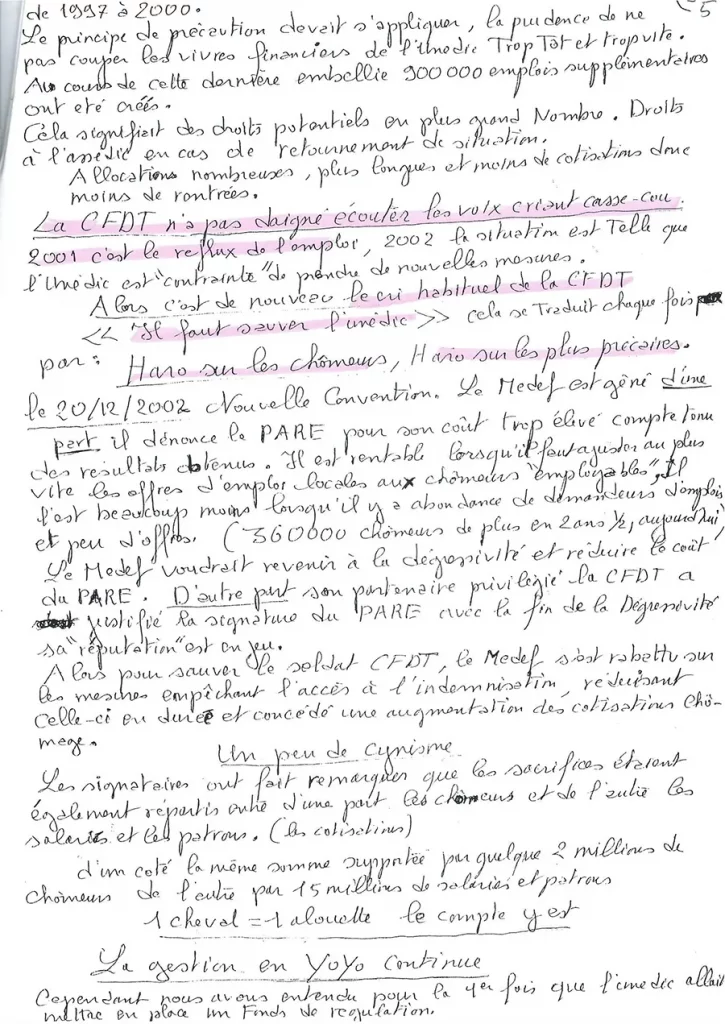 de 1997 à 2000.
5
Le principe de précaution devait s'appliquer, la prudence de ne
pas couper les vivres financiers de l'Unedic Trop Tôt et trop vite.
Au cours de cette dernière embellie 900 000 emplois supplémentaires
ont été créés.
Cela signifiait des droits potentiels en plus grand Nombre. Droits
à l'assedic en cas de retournement de situation.
Allocations nombreuses, plus longues et moins de cotisations donc
moins de rentrées.
La CFDT n'a pas daigné écouter les voix criant casse-cou.
2001 c'est le reflux de l'emploi, 2002 la situation est Telle que
l'Unédic est "contrainte" de prendre de nouvelles mesures.
Alors c'est de nouveau le cri habituel de la CFDT
<< Il faut sauver l'unédic >> cela se Traduit chaque fois
par : Haro sur les chômeurs, Haro sur les plus précaires.
le 20/12/2002 Nouvelle Convention. Le Medef est gêné d'une
part il dénonce le PARE pour son coût trop élevé compte tenu
des résultats obtenus. Il est rentable lorsqu'il faut ajuster au plus
vite les offres d'emploi locales aux chômeurs "employables", Il
l'est beaucoup moins lorsqu'il y a abondance de demandeurs d'emplois
et peu d'offres. (360000 chômeurs de plus en 2 ans ½, aujourd'hui)
Le Medef voudrait revenir à la dégressivité et réduire le coût
du PARE. D'autre part son partenaire privilégié la CFDT a
justifié la signature du PARE avec la fin de la Dégressivité
sa "réputation" est en jeu.
Alors pour sauver le soldat CFDT, le Medef s'est rabattu sur
les mesures empêchant l'accès à l'indemnisation, réduisant
celle-ci en durée et concédé une augmentation des cotisations chô-
mage.
Un peu de cynisme
Les signataires ont fait remarquer que les sacrifices étaient
également répartis entre d'une part les chômeurs et de l'autre les
salariés et les patrons. (les cotisations)
d'un coté la même somme supportée par quelque 2 millions de
chômeurs de l'autre par 15 millions de salariés et patrons
1 cheval = 1 alouette le compte y est
La gestion en YoYo Continue
Cependant nous avons entendu pour la 1er fois que l'unedic allait
mettre en place un Fonds de régulation.